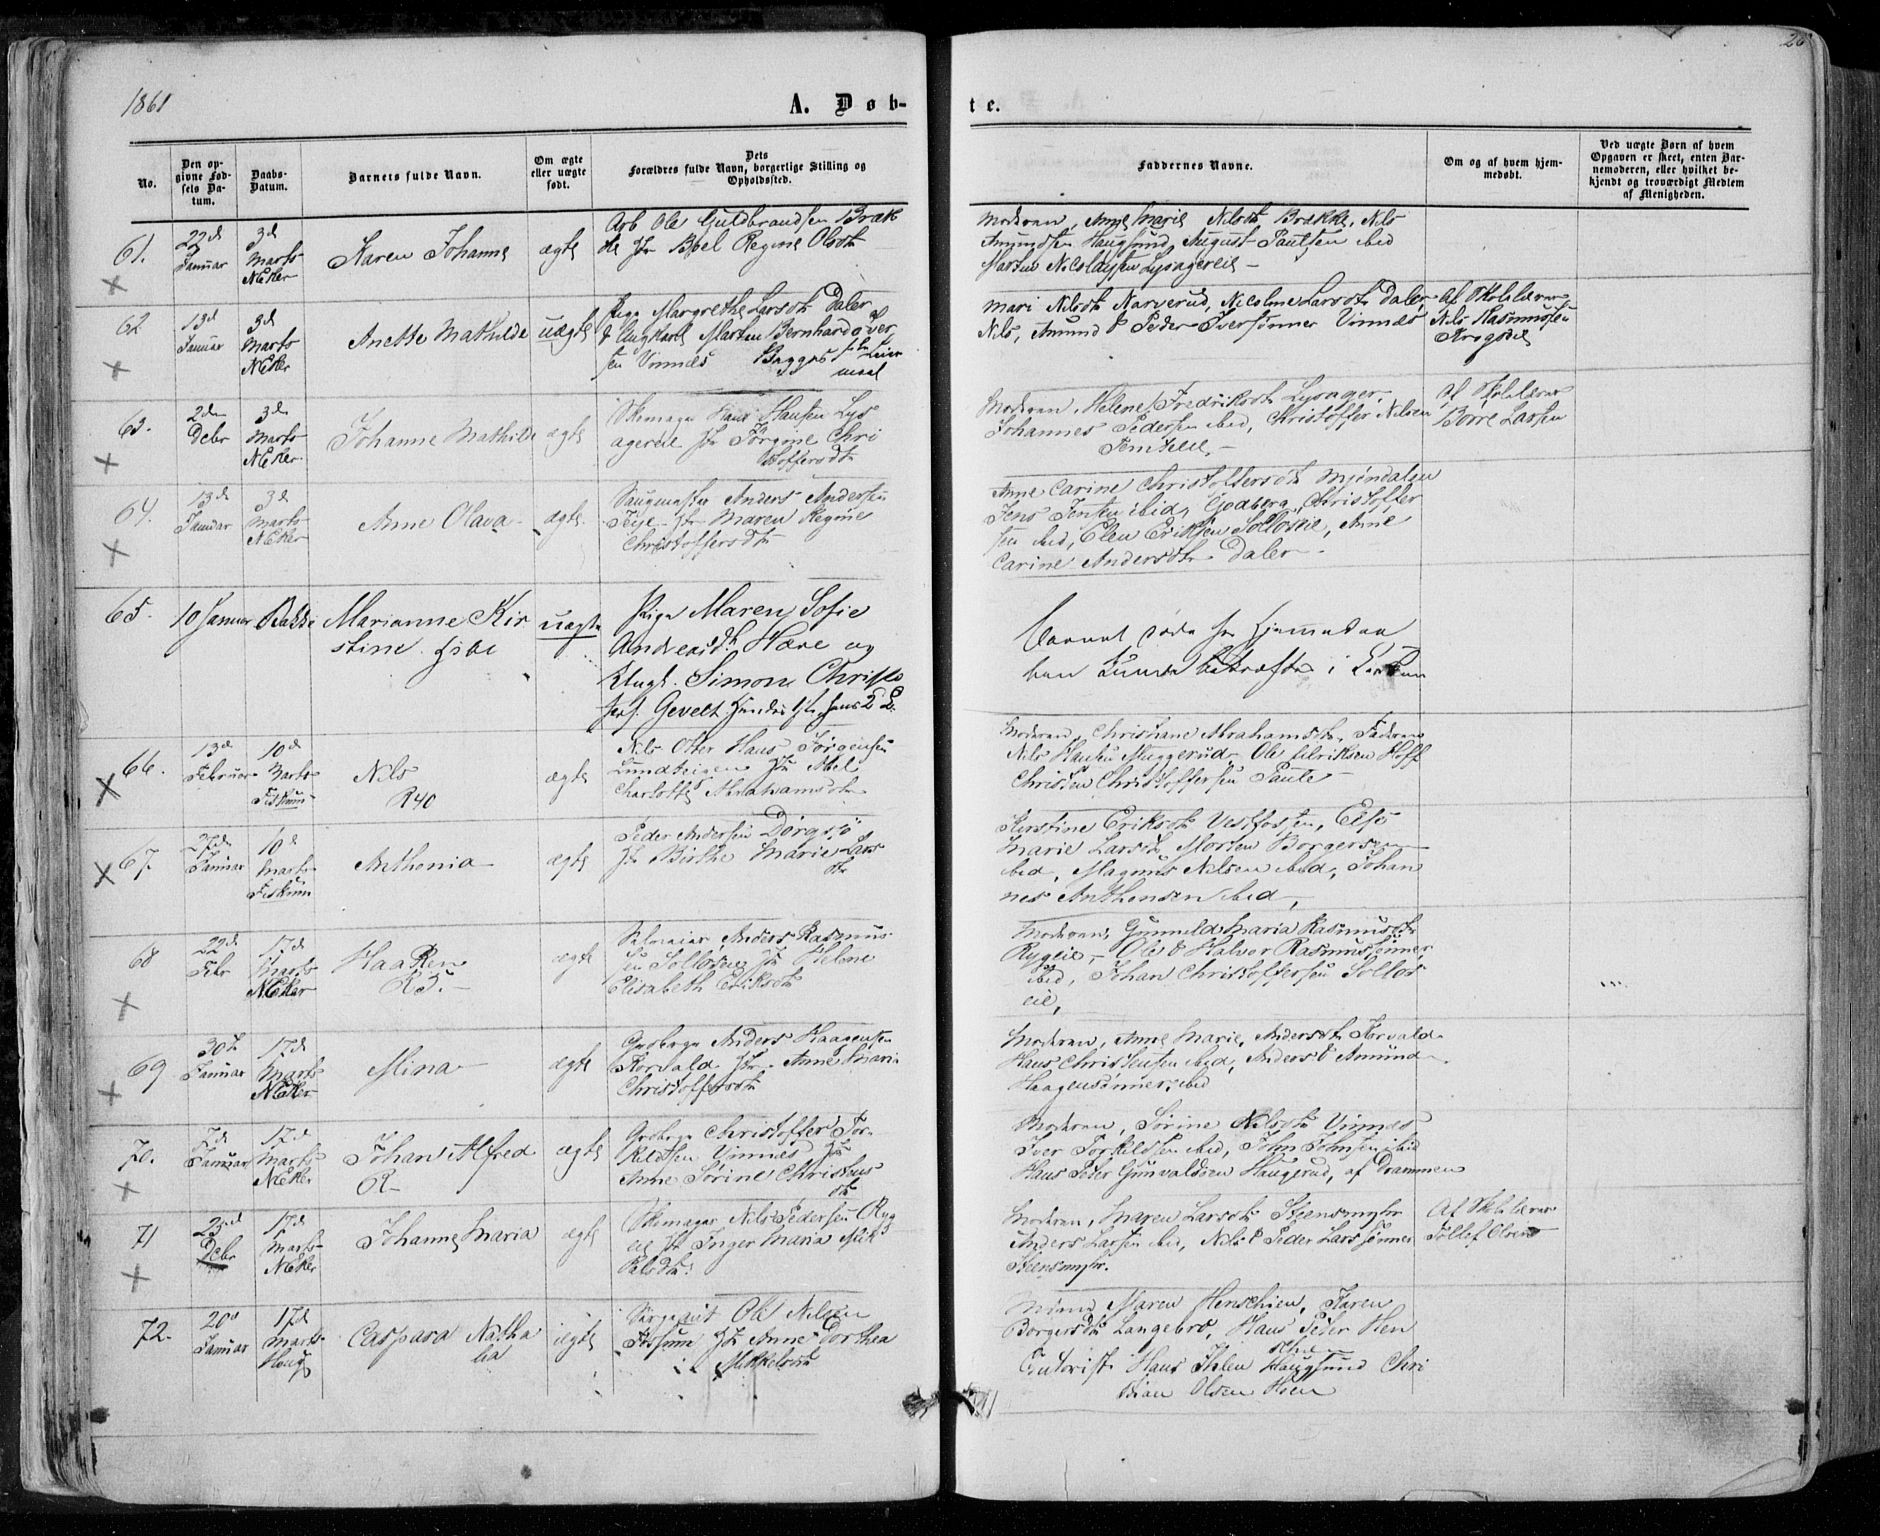 1861
A. Døb-
te.
26
No.
Den op-
givne Fød-
sels Da-
tum.
Daabs-
Datum.
Barnets fulde Navn.
Om ægte
eller uægte
født.
Dets
Forældres fulde Navn, borgerlige Stilling og
Opholdssted.
Faddernes Navne.
Om og af hvem hjem-
medøbt.
Ved uægte Børn af hvem
Opgaven er skeet, enten Bar-
nemoderen, eller hvilket be-
kjendt og troværdigt Medlem
af Menigheden.
61.
22d
Januar
3d
Marts
NEker
Karen Johanne
ægte
Arb Ole Guldbrandsen Bræk
Regine Olsdt
Moderen, Anne Marie Nilsdt Brække, Nils
Amundsen Haugsund, August Paulsen ibid
Marten Nicolaysen Lysagereie
62
13d
Januar
3d
Marts
NEker
Anette Mathilde
uægte
Pige Margrethe Larsdt Daler
& Ungkarl Marten Bernhard Iver
sen Vinnes Begges 1ste Leier
maal
Mari Nilsdt Narverud, Nicoline Larsdt Daler
Nils, Amund & Peder Iversønner Vinnes
Af Skolelærer
Nils Rasmussen
Krogsdel
63.
2den
Debr
3de
Marts
NEker
Johanne Mathilde
ægte
Skomager Hans Hansen Lys
agereie Jørgine Chri
stoffersdt
Moderen, Helene Fredriksdt Lysager,
Johannes Pedersen ibid, Christoffer Nilsen
Af Skolelærer
Borre Larsen
64.
13d
Januar
3d
Marts
NEker
Anne Olava
ægte
Saugmester Anders Andersen
Maren Regine
Christoffersdt
Anne Carine Christoffersdt Mjøndalen
Jens Jensen ibid, Godberg Christoffer
sen ibid, Elen Eriksen Solloseie, Anne
Carine Andersdt Daler
65.
10 Januar
Bakke
Marianne Kir
stine
uægte
Pige Maren Sofie
Andreasdt Hære og
Ungk. Simon Christo
fers. Gevelt
66.
13d
Februar
10d
Marts
Fiskum
Nils
R40
ægte
Nils Otter Hans Jørgensen
Lundteigen Abel
Charlotte Abrahamsdt
Moderen, Christiane Abrahamsdt, Faderen
Nils Hansen Muggerud, Ole Ulriksen Hoff
Christen Christoffersen Taule
67.
27de
Januar
10d
Marts
Fiskum
Anthonia
ægte
Peder Andersen Dørgsjø
Birthe Marie Lars
dtr
Kirstine Eriksdt Vestfossen, Else
Marie Larsdt, Morten Borgersen
ibid, Magnus Nilsen ibid, Johan
nes Anthonsen ibid,
68
22d
Febr
17d
Marts
NEker
Haaken
R5.
ægte
Anders Rasmus
sen Solloseie Helene
Elisabeth Eriksdt
Moderen, Gunnild Maria Rasmusdt
Rygeie, Ole & Halvor Rasmussønner
ibid, Johan Christoffersen Sollos
eie,
69
30te
Januar
17d
Marts
NEker
Mina
ægte
Gaardbr Anders Haagensen
Korvald Anne Maria
Christoffersdt
Moderen, Anne Marie Andersdt Korvald
Hans Christensen ibid, Anders & Amund
Haagensønner, ibid
70.
7d
Januar
17d
Marts
NEker
Johan Alfred
R
ægte
Gaardbr Christoffer Tor
kildsen Vinnes
Anne Sørine Christens
dt
Moderen, Sørine Nilsdt Vinnes
Iver Torkildsen ibid, John Johnsen ibid
Hans Peder Gunvaldsen Haugerud, af Drammen
71
23d
Debr
17d
Marts
NEker
Johanne Maria
ægte
Skomager Nils Pedersen Ryg
eie Inger Maria Mik
kelsdt.
Moderen, Maren Larsdt Steensmyhr
Anders Larsen ibid, Nils & Peder Larssønner
Steensmyhr.
Af Skolelærer
Tollef Olsen
72.
20d
Januar
17d
Marts
Haug
Caspara Natha
lia
ægte
Ole Nilsen
Fossum Anne Dorthea
Mikkelsdt
Maren Henschien, Karen
Borgersdt Langebro, Hans Peder Hen
Hans Ihlen Haugsund Chri
stian Olsen Hoen